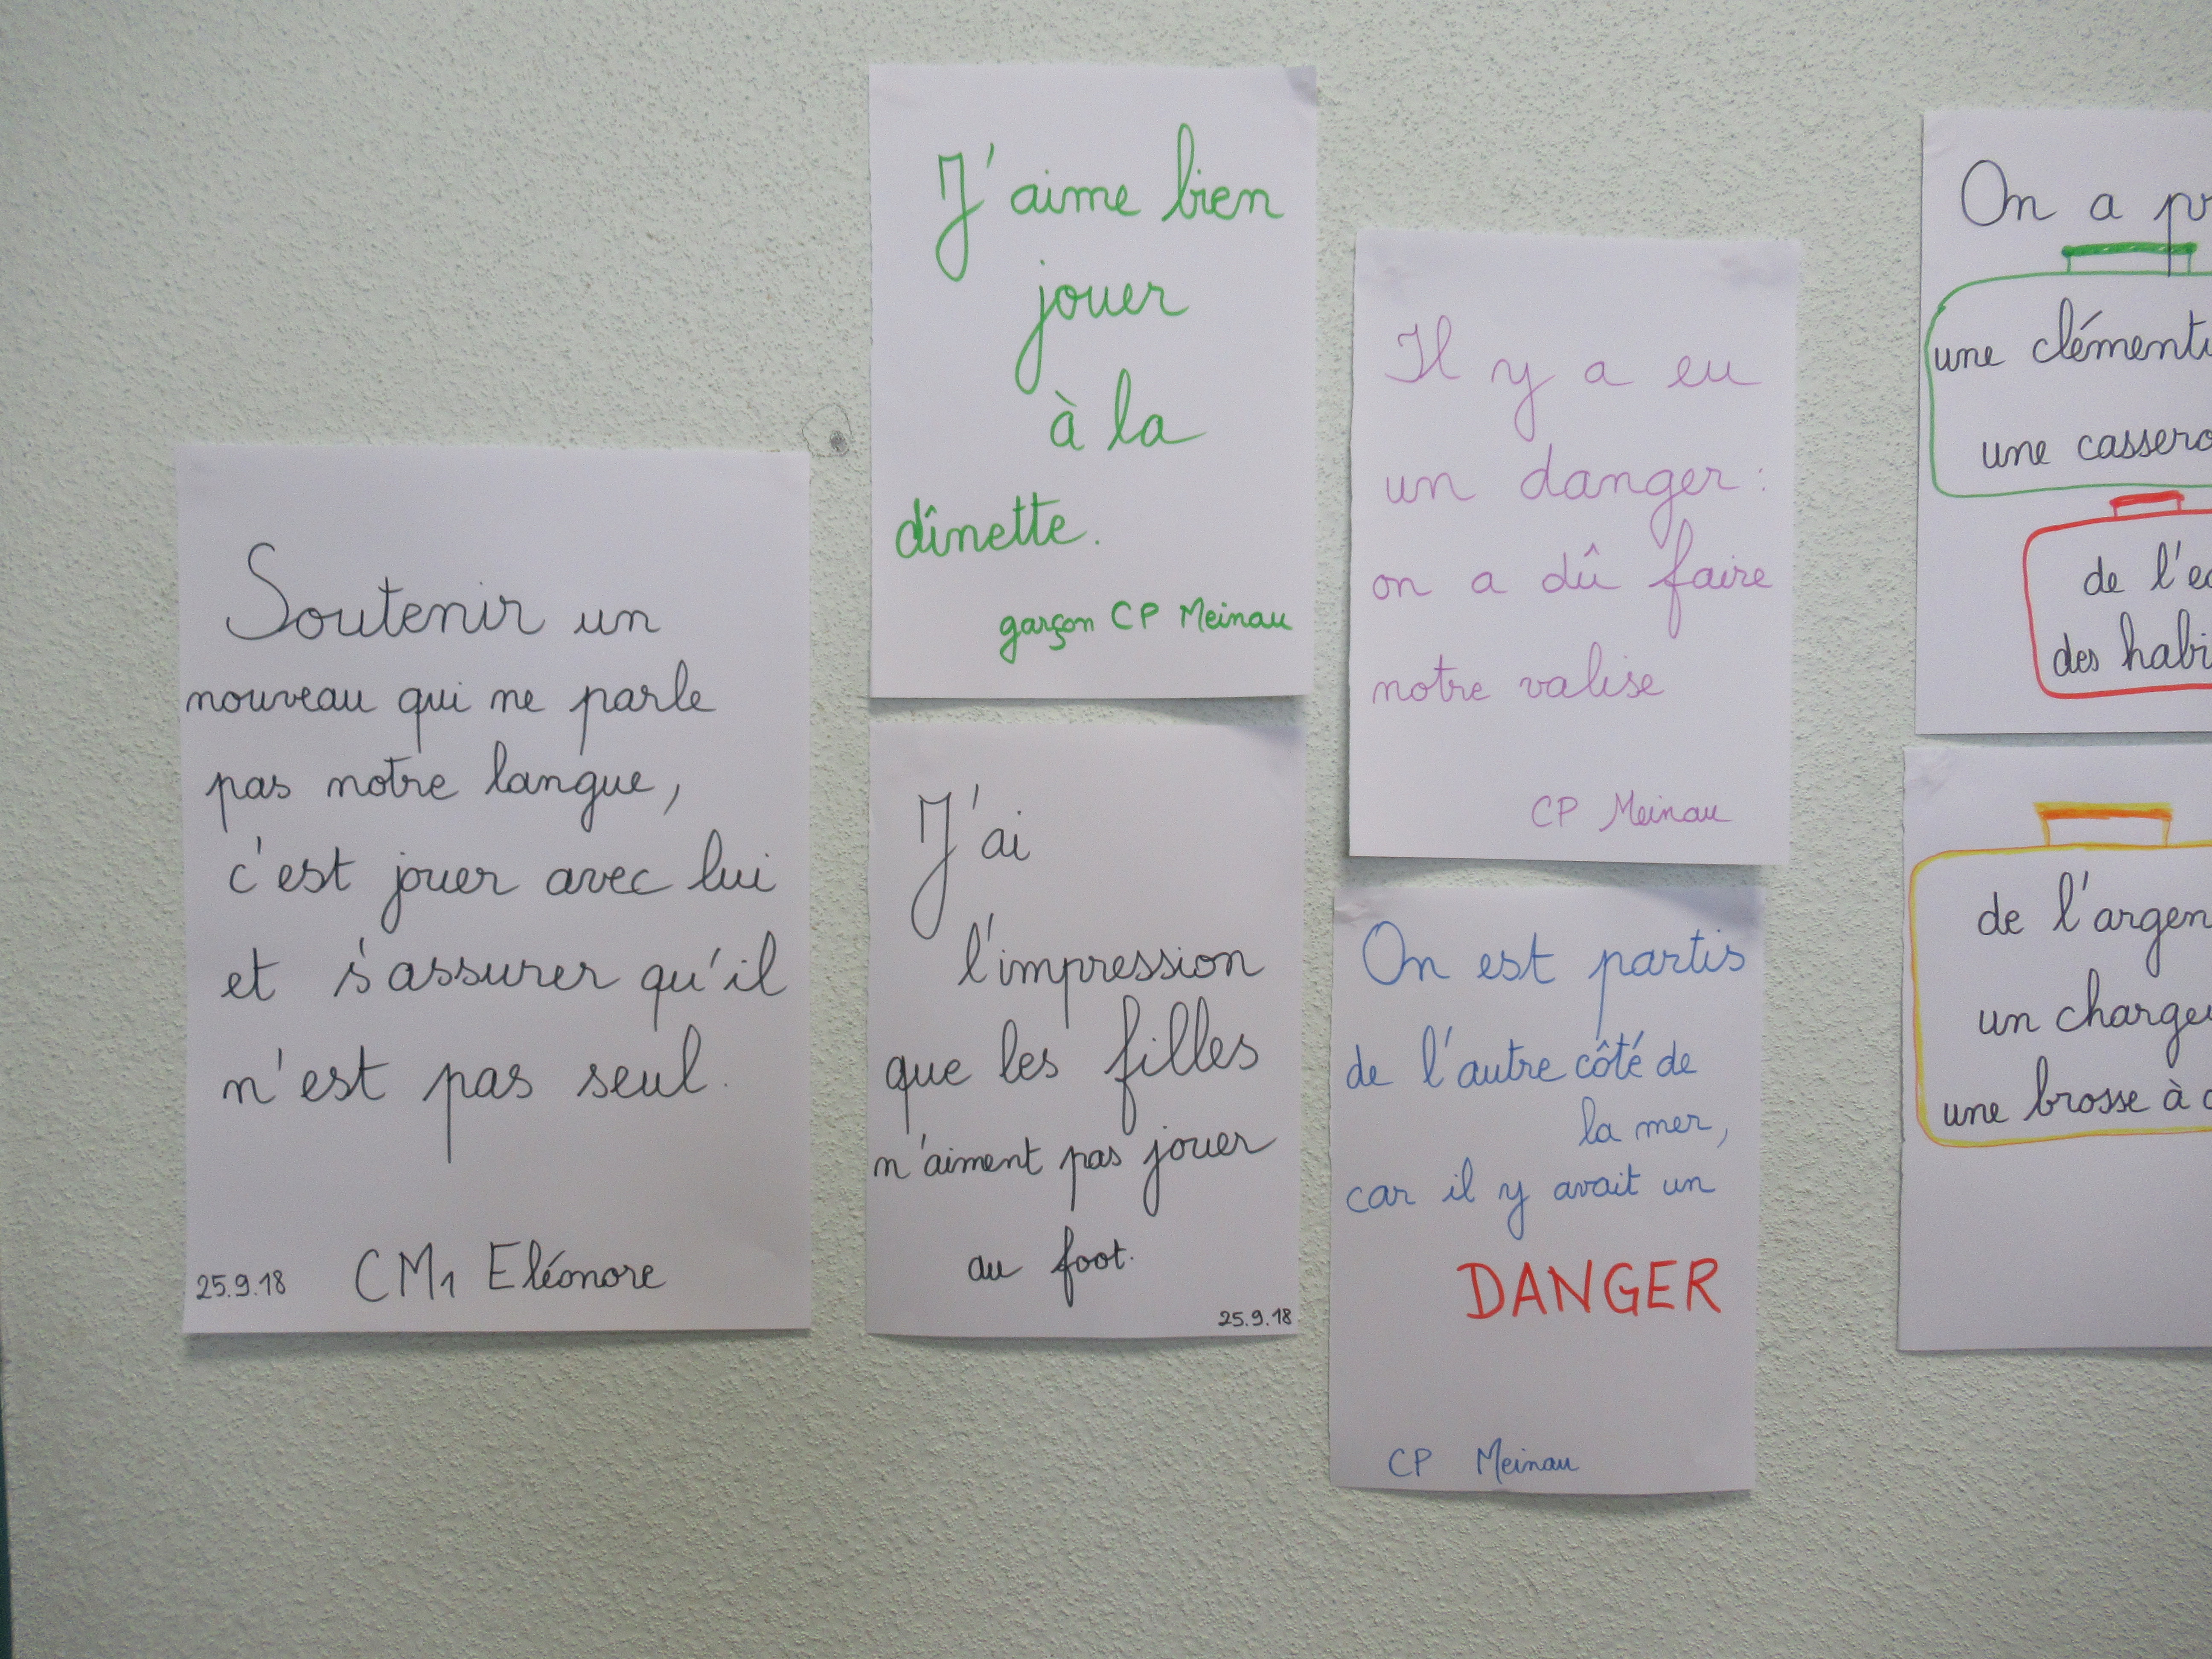 Soutenir un
nouveau qui ne parle
pas notre langue,
c'est jouer avec lui
et s'assurer qu'il
n'est pas seul.
25.9.18 CM1 Eléonore
J'aime bien
jouer
à la
dînette.
garçon CP Meinau
J'ai
l'impression
que les filles
n'aiment pas jouer
au foot.
25.9.18
Il y a eu
un danger:
on a dû faire
notre valise
CP Meinau
On est partis
de l'autre côté de
la mer,
car il y avait un
DANGER
CP Meinau
On a
une
une
de
des
de
un
une brosse à